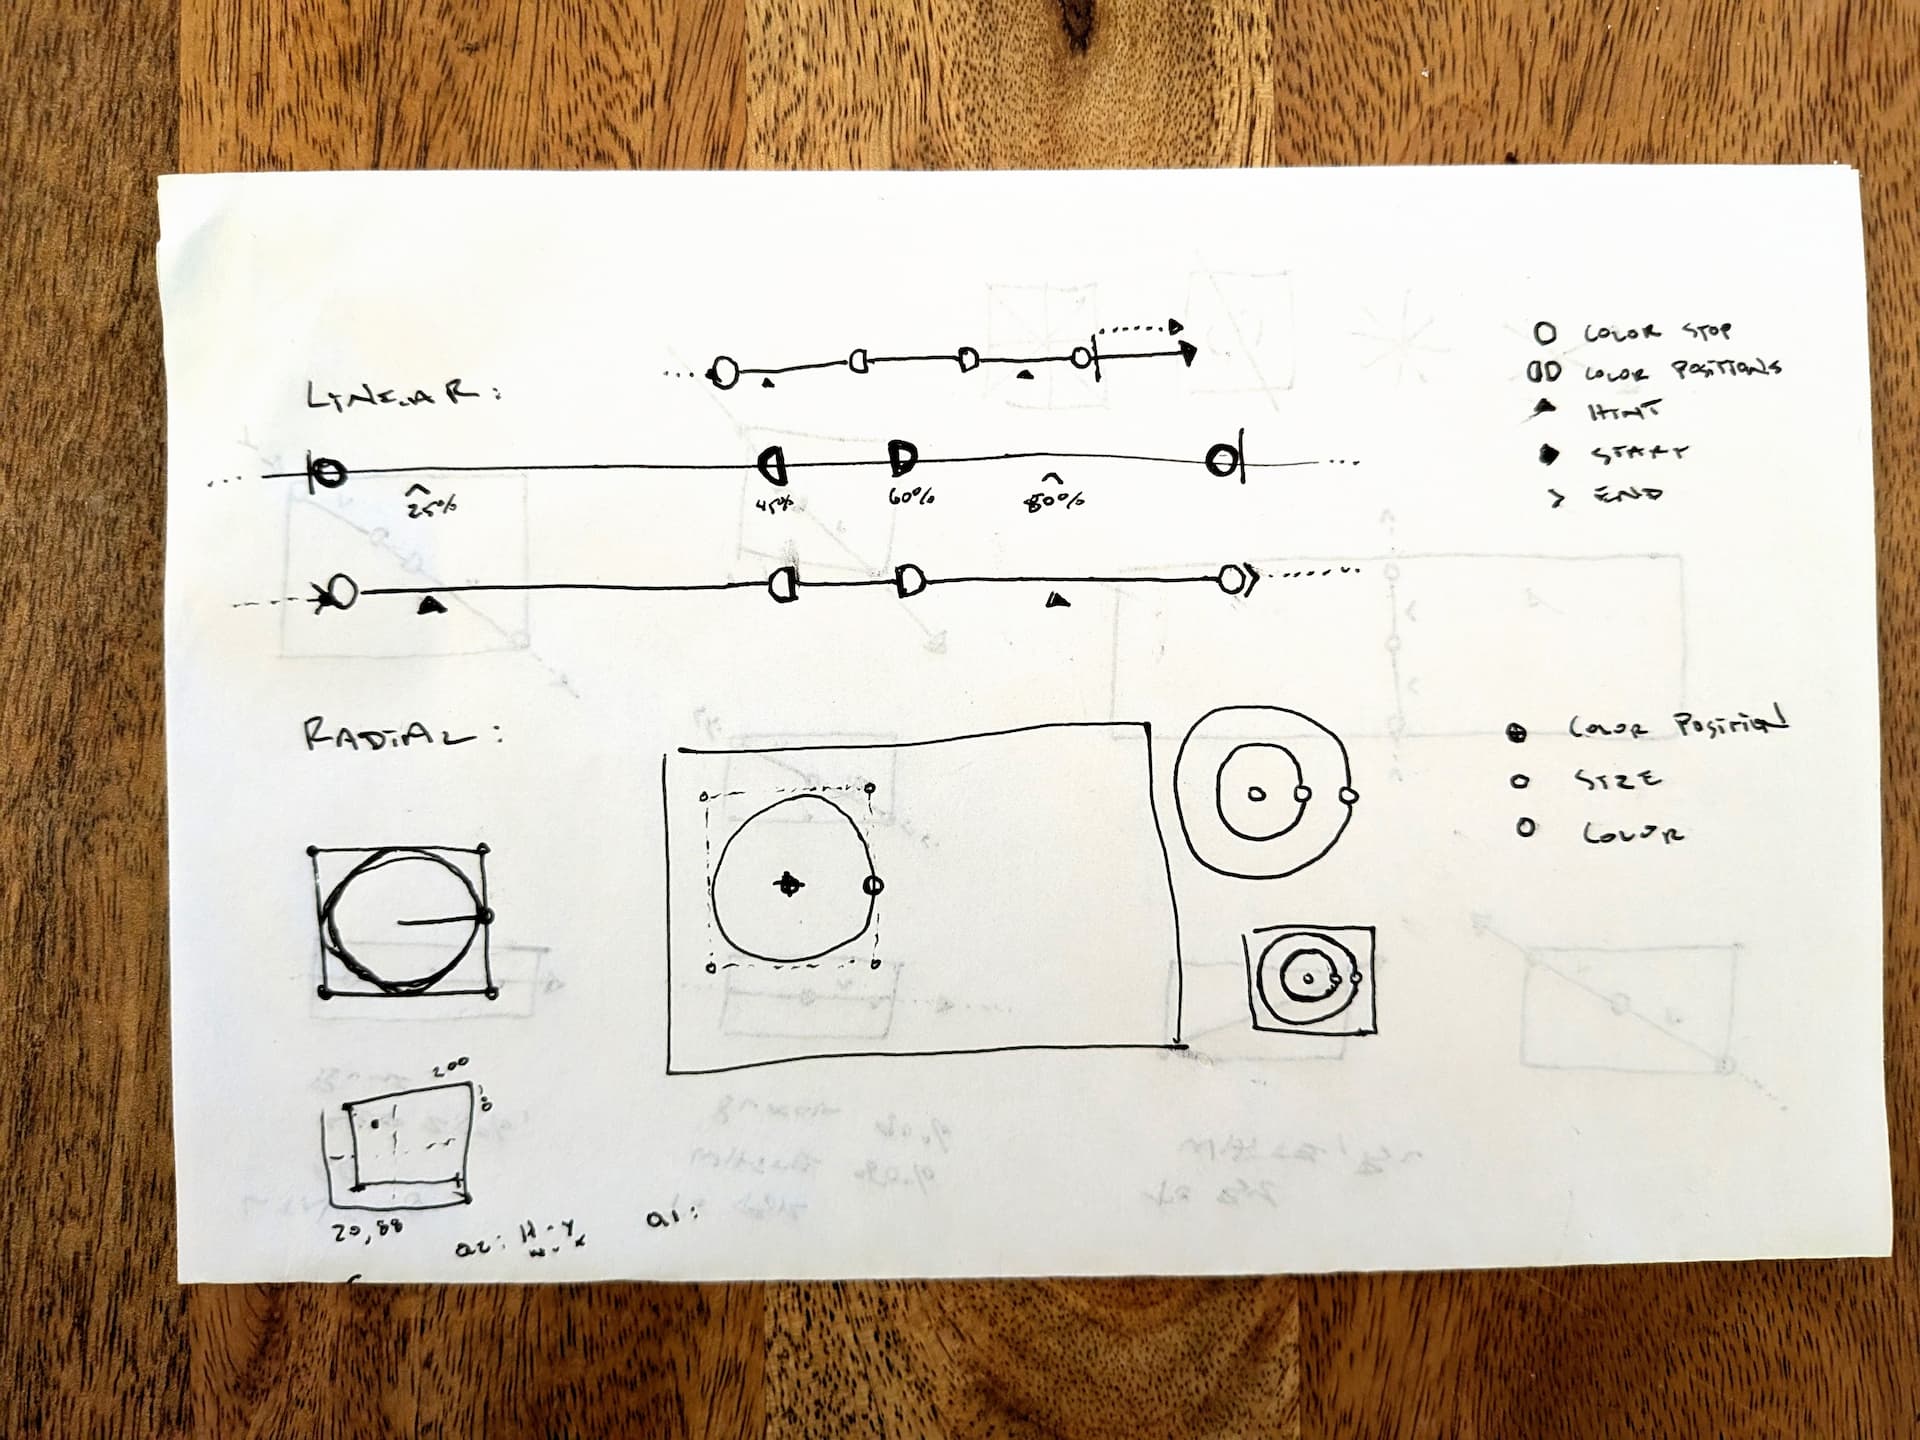 LINEAR:
25%
45%
60%
80%
COLOR STOP
COLOR POSITIONS
HINT
START
END
RADIAL:
COLOR POSITION
SIZE
COLOR
200
20,88
a2: H-Y
W-X
a1: